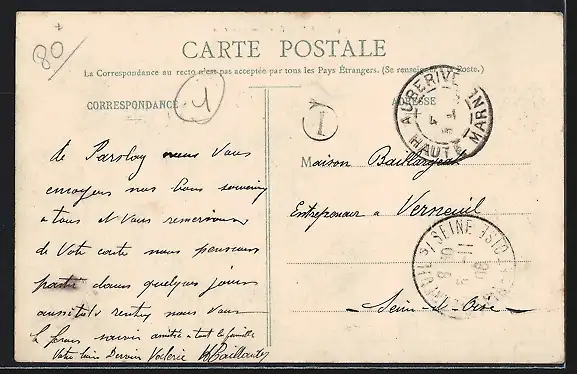 80
CARTE POSTALE
La Correspondance au recto n'est pas acceptée par tous les Pays Étrangers. (Se renseigner à la Poste.)
CORRESPONDANCE
ADRESSE
1
AUBERIVE
HAUTE MARNE
de nous Vous
envoyons nos bons souvenirs
a tous et Vous remercions
de Votre carte nous pensons
partir dans quelques jours
aussitôt rentrez nous Vous
le ferons savoir amitié a tout la famille
Votre Valerie
Maison
Entrepreneur a Verneuil
SEINE ET OISE
Seine-et-Oise